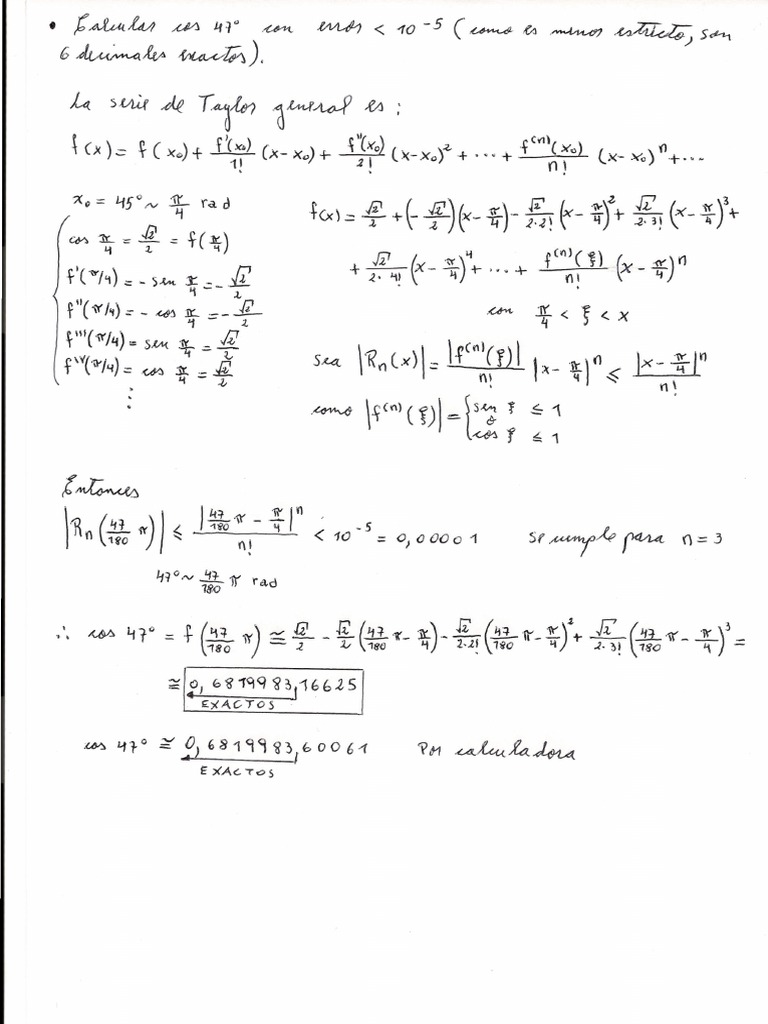 • Calcular cos 47° con error < 10⁻⁵ (como es menor estricto, son
6 decimales exactos).
La serie de Taylor general es:
f(x) = f(x₀) + f'(x₀)/1! (x-x₀) + f''(x₀)/2! (x-x₀)² + ... + f⁽ⁿ⁾(x₀)/n! (x-x₀)ⁿ + ...
x₀ = 45° ~ π/4 rad
cos π/4 = √2/2 = f(π/4)
f'(π/4) = - sen π/4 = - √2/2
f''(π/4) = - cos π/4 = - √2/2
f'''(π/4) = sen π/4 = √2/2
f'ᵛ(π/4) = cos π/4 = √2/2
⋮
f(x) = √2/2 + (-√2/2)(x - π/4) - √2/2·2! (x - π/4)² + √2/2·3! (x - π/4)³ +
+ √2/2·4! (x - π/4)⁴ + ... + f⁽ⁿ⁾(ξ)/n! (x - π/4)ⁿ
con π/4 < ξ < x
sea |Rₙ(x)| = |f⁽ⁿ⁾(ξ)|/n! |x - π/4|ⁿ ≤ |x - π/4|ⁿ/n!
como |f⁽ⁿ⁾(ξ)| = { sen ξ ≤ 1
o
cos ξ ≤ 1
Entonces
|Rₙ(47/180 π)| ≤ |47/180 π - π/4|ⁿ/n! < 10⁻⁵ = 0,00001 se cumple para n = 3
47° ~ 47/180 π rad
∴ cos 47° = f(47/180 π) ≅ √2/2 - √2/2 (47/180 π - π/4) - √2/2·2! (47/180 π - π/4)² + √2/2·3! (47/180 π - π/4)³ =
≅ 0,6819983,16625
EXACTOS
cos 47° ≅ 0,6819983,60061 Por calculadora
EXACTOS